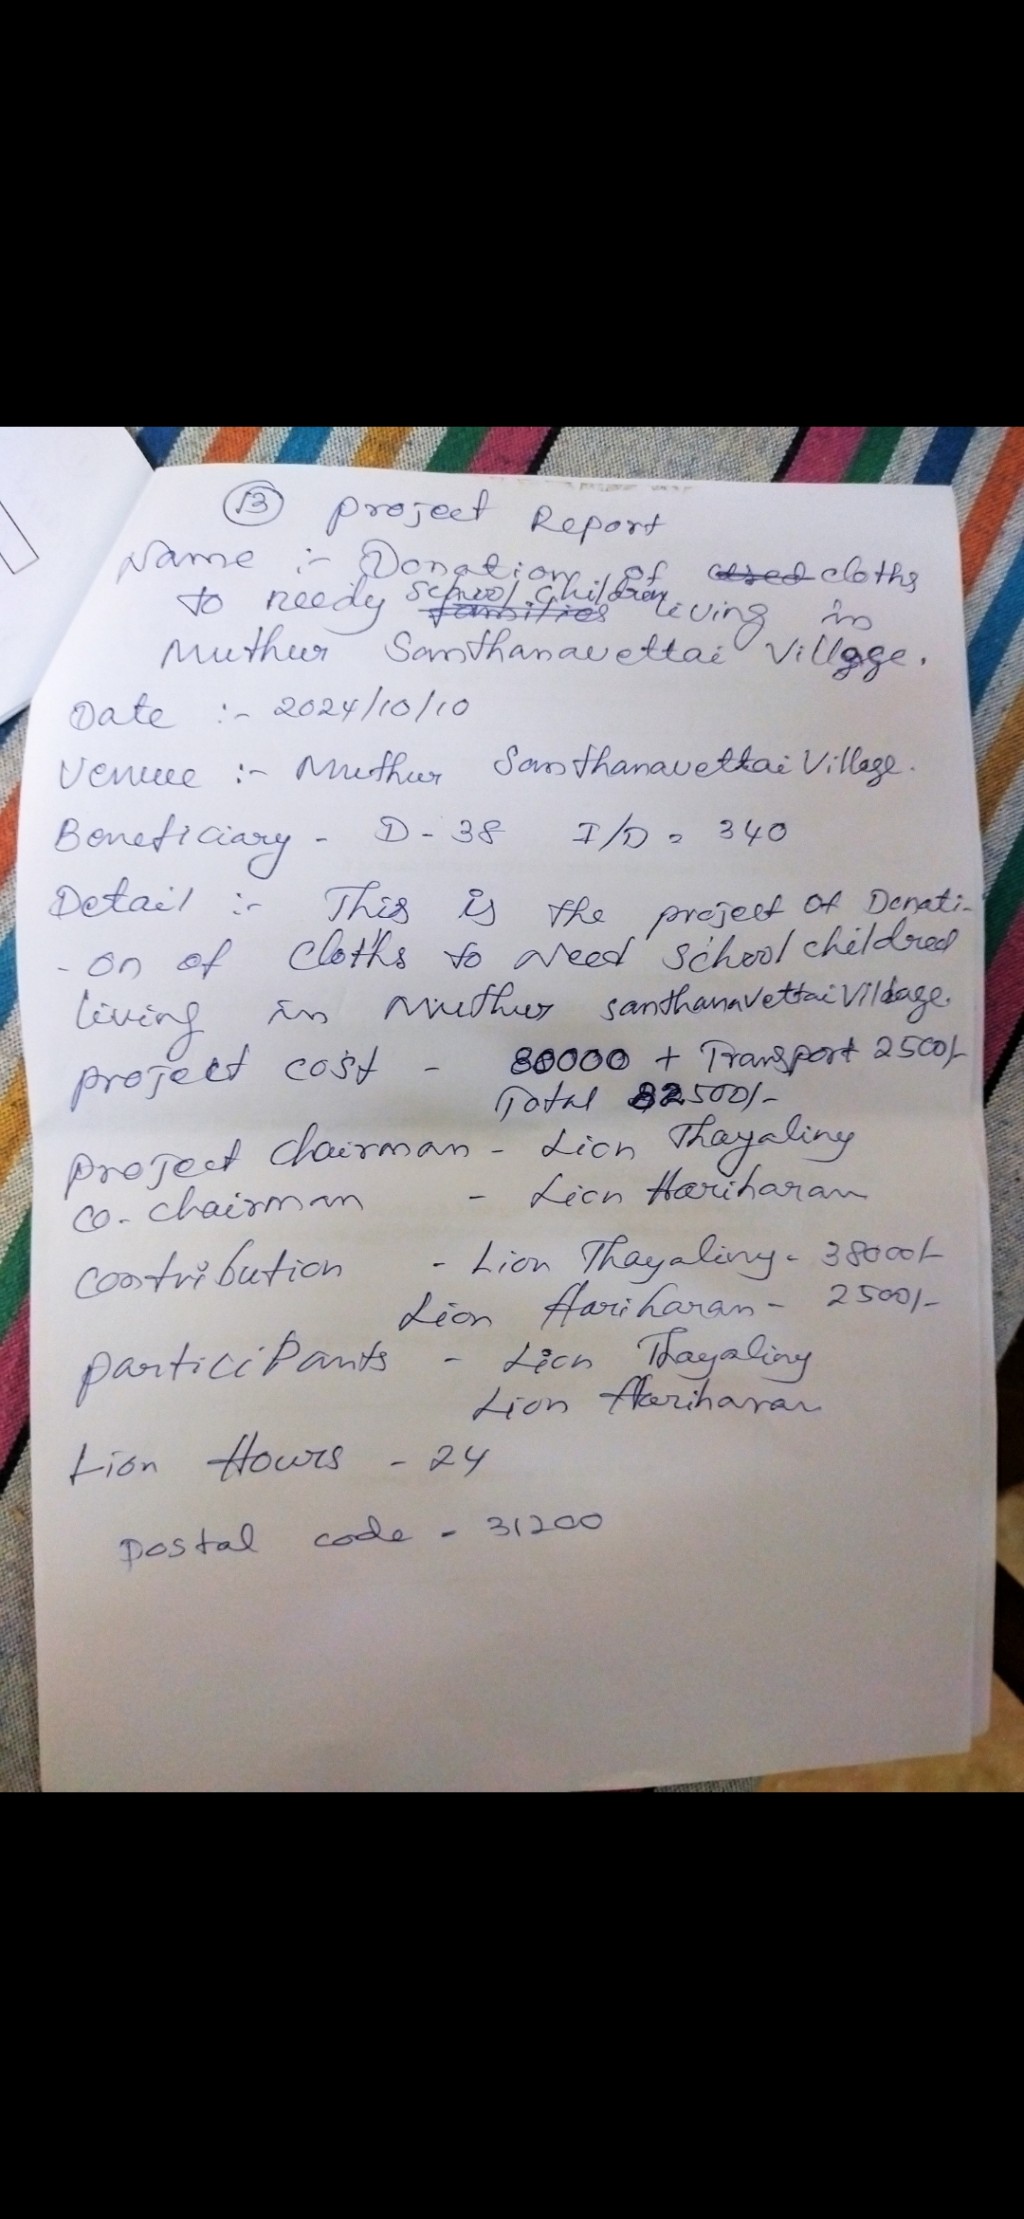 13 Project Report
Name :- Donation of used cloths
to needy school children families living in
Muthur Santhanavettai Village.
Date :- 2024/10/10
Venue :- Muthur Santhanavettai Village.
Beneficiary - D - 38 I/D = 340
Detail :- This is the project of Donati-
- on of cloths to Need school childred
living in Muthur santhanavettai Village.
project cost - 80000 + Transport 2500/-
Total 82500/-
project chairman - Lion Thayaliny
co. chairman - Lion Hariharan
contribution - Lion Thayaliny - 38000/-
Lion Hariharan - 2500/-
participants - Lion Thayaliny
Lion Hariharan
Lion Hours - 24
Postal code - 31200